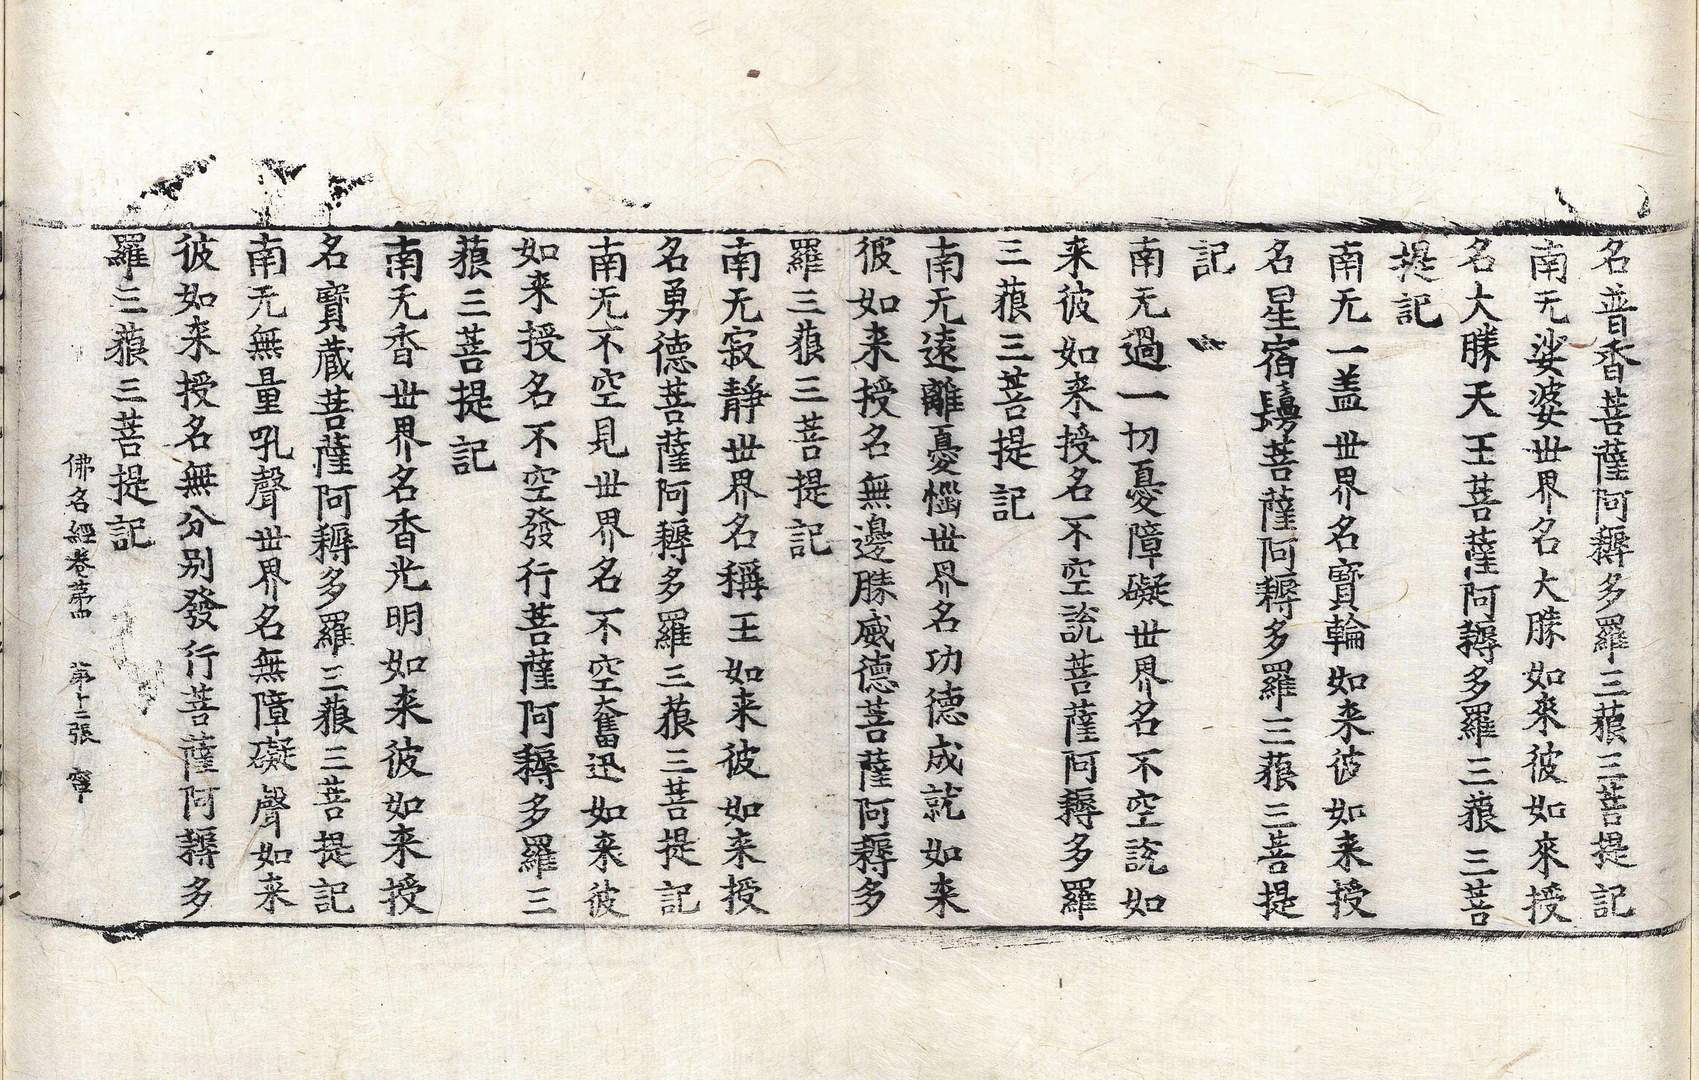 名普香菩薩阿耨多羅三藐三菩提記
南无娑婆世界名大勝如來彼如來授
名大勝天王菩薩阿耨多羅三藐三菩
提記
南无一盖世界名寳輪如来彼如来授
名星宿鬘菩薩阿耨多羅三藐三菩提
記
南无過一切憂障礙世界名不空說如
来彼如来授名不空說菩薩阿耨多羅
三藐三菩提記
南无遠離憂惱世界名功德成就如来
彼如来授名無邊勝威德菩薩阿耨多
羅三藐三菩提記
南无寂靜世界名稱王如来彼如来授
名勇德菩薩阿耨多羅三藐三菩提記
南无不空見世界名不空奮迅如来彼
如来授名不空發行菩薩阿耨多羅三
藐三菩提記
南无香世界名香光明如来彼如来授
名寳蔵菩薩阿耨多羅三藐三菩提記
南无無量吼聲世界名無障礙聲如来
彼如来授名無分别發行菩薩阿耨多
羅三藐三菩提記
佛名經卷第四 第十二張 寧